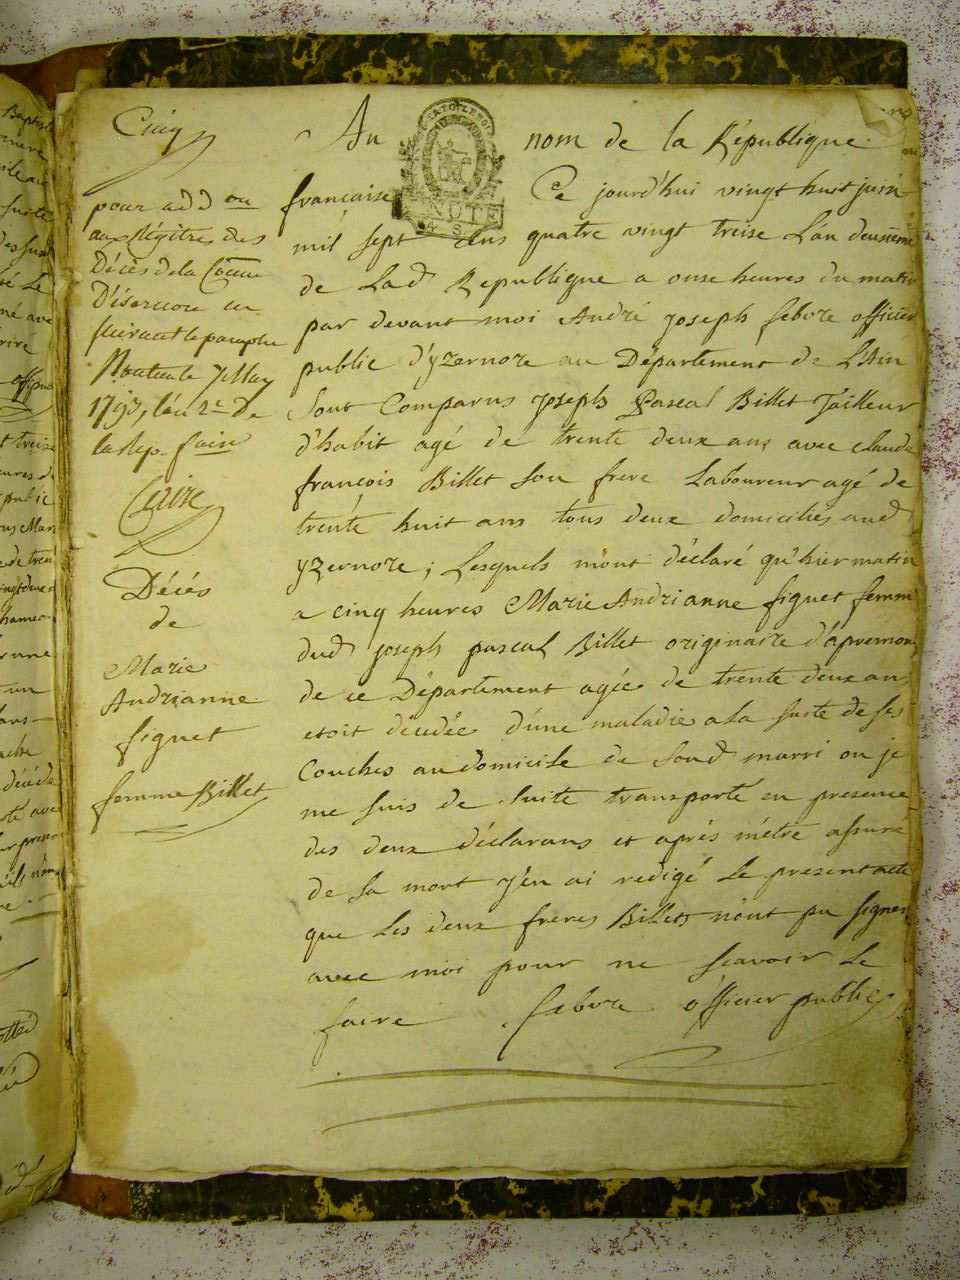 Cinq
pour add on
aux Régitres des
Décès de la Coẽune
D'isernore en
suivant le paraphe
Nantua le 7 May
1793, l'an 2e de
la Rep. faire
Décés
de
Marie
Andrianne
figuet
femme Billet
Au nom de la République
francaise Ce jourd'hui vingt huit juin
mil sept cens quatre vingt treise L'an deusième
de Lad Republique a onse heures du matin
par devant moi André joseph febvre officier
public d'yzernore au Département de L'Ain
Sont Comparus joseph Pascal Billet Tailleur
d'habit agé de trente deux ans avec claude
françois Billet son frere Laboureur agé de
trente huit ans tous deux domiciliés aud
yzernore; Lesquels m'ont déclaré qu'hier matin
a cinq heures Marie Andrianne figuet femm
dud joseph pascal Billet originaire d'apremon
de ce Département agée de trente deux an
etoit décédée d'une maladie a La suite de ses
Couches au domicile de Soud marri ou je
me suis de suite transporté en presence
des deux déclarans et aprés m'etre assuré
de sa mort j'en ai redigé Le present acte
que Les deux freres Billets n'ont pu signer
avec moi pour ne scavoir Le
faire febvre officier public